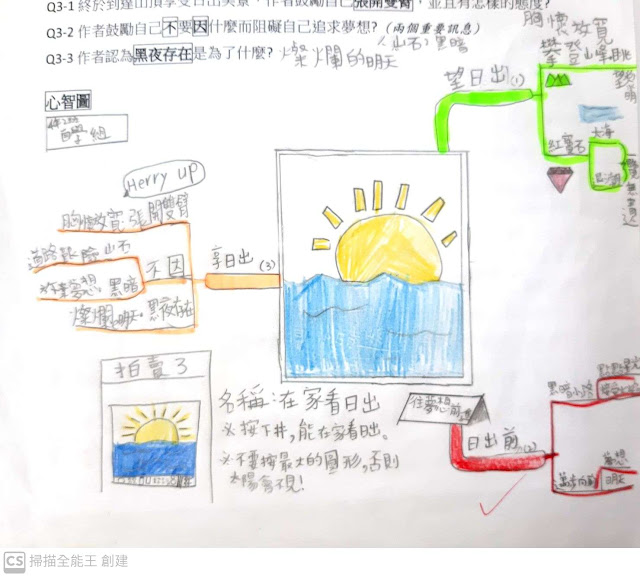 Q3-1 終於到達山頂享受日出美景，作者鼓勵自己張開雙臂，並且有怎樣的態度?
胸懷放寬
Q3-2 作者鼓勵自己不要因什麼而阻礙自己追求夢想? (兩個重要訊息)
山石, 黑暗
Q3-3 作者認為黑夜存在是為了什麼? 燦爛的明天
心智圖
望日出(1)
攀登山峰
紅寶石
大海
Herry up
胸懷放寬 張開雙臂
道路艱險 山石
不因
黑暗
享日出(3)
燦爛明天 黑夜存在
拍賣了
名稱:在家看日出
※按下井,能在家看日出。
※不要按最大的圓形,否則
太陽會不見!
往夢想前進
日出前(2)
黑暗小路
夢想
明天
CS 掃描全能王 創建